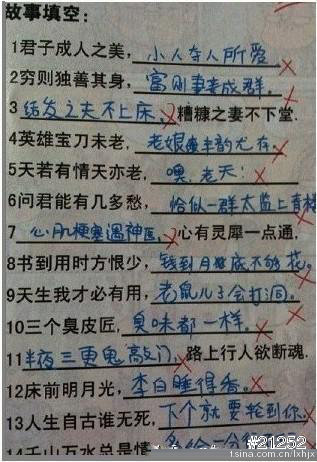 故事填空：
1君子成人之美，小人夺人所爱
2穷则独善其身，富则妻妾成群。
3结发之夫不上床，糟糠之妻不下堂.
4英雄宝刀未老，老娘风韵尤存。
5天若有情天亦老，噢，老天！
6问君能有几多愁，恰似一群太监上青楼
7心肌梗塞遇神医，心有灵犀一点通，
8书到用时方恨少，钱到月底不够花。
9天生我才必有用，老鼠儿子会打洞。
10三个臭皮匠，臭味都一样。
11半夜三更鬼敲门，路上行人欲断魂.
12床前明月光，李白睡得香。
13人生自古谁无死，下个就要轮到你.
14千山万水总是情
#21252
tsina.com.cn/lxhjx